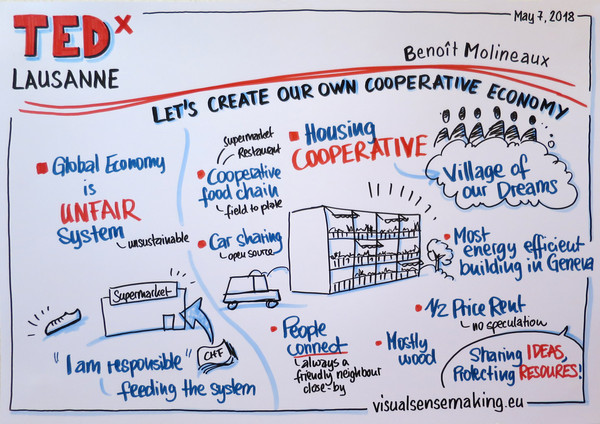 TEDx
LAUSANNE
May 7, 2018
Benoît Molineaux
LET'S CREATE OUR OWN COOPERATIVE ECONOMY
Global Economy
is
UNFAIR
System
unsustainable
Supermarket
CHF
"I am responsible"
feeding the system
supermarket
Restaurant
Cooperative
food chain
field to plate
Car sharing
open source
Housing
COOPERATIVE
Village of
our Dreams
Most
energy efficient
building in Geneva
1/2 Price Rent
no speculation
People
connect
always a
friendly neighbour
close-by
Mostly
wood
Sharing IDEAS,
Protecting RESOURES!
visualsensemaking.eu